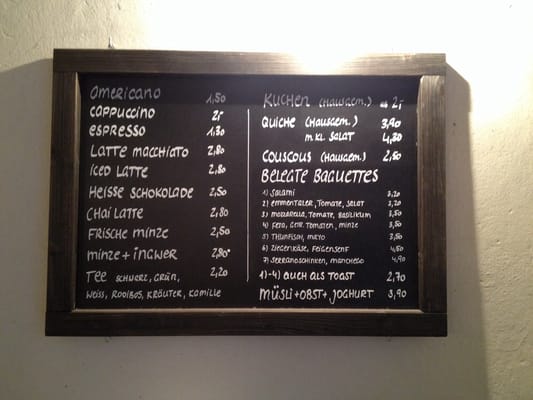 Americano 1,50
Cappuccino 2,-
Espresso 1,30
Latte Macchiato 2,80
Iced Latte 2,80
Heisse Schokolade 2,50
Chai Latte 2,80
Frische Minze 2,50
Minze + Ingwer 2,80
Tee Schwarz, Grün, 2,20
Weiss, Rooibos, Kräuter, Kamille
Kuchen (Hausgem.) 2,-
Quiche (Hausgem.) 3,90
mkl Salat 4,80
Couscous (Hausgem.) 2,50
Belegte Baguettes
1) Salami 3,20
2) Emmentaler, Tomate, Salat 3,20
3) Mozzarella, Tomate, Basilikum 3,50
4) Feta, Getr. Tomaten, Minze 3,50
5) Thunfisch, Mayo 3,50
6) Ziegenkäse, Feigensenf 4,50
7) Serranoschinken, Manchego 4,90
1)-4) auch als Toast 2,70
Müsli + Obst + Joghurt 3,90